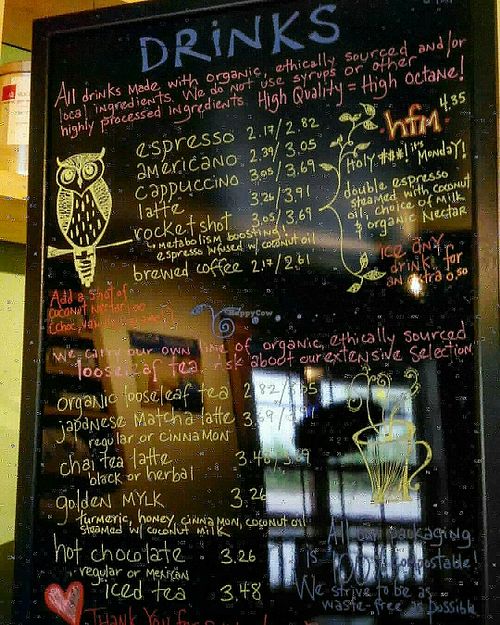 DRiNKS
All drinks Made with organic, ethically sourced and/or
local ingredients. We do not use syrups or other
highly processed ingredients. High Quality = High Octane!
espresso 2.17/2.82
americano 2.39/3.05
cappuccino 3.05/3.69
latte 3.26/3.91
rocket shot 3.05/3.69
metabolism boosting!
espresso infused w/ coconut oil
brewed coffee 2.17/2.61
hfm 4.35
Holy #*! it's Monday!
double espresso
steamed with coconut
oil, choice of Milk
& organic Nectar
ice any
drink for
an extra 0.50
Add a shot of
coconut Nectar
HappyCow
We carry our own line of organic, ethically sourced
loose leaf tea. Ask about our extensive selection
organic looseleaf tea 2.82/
japanese Matcha latte 3.69/
regular or cinnamon
chai tea latte 3.48/3.69
black or herbal
golden MYLK 3.26
turmeric, honey, cinnamon, coconut oil
steamed w/ coconut milk
hot chocolate 3.26
regular or Mexican
iced tea 3.48
All our packaging
is 100% compostable!
We strive to be as
waste-free as possible
Thank You for